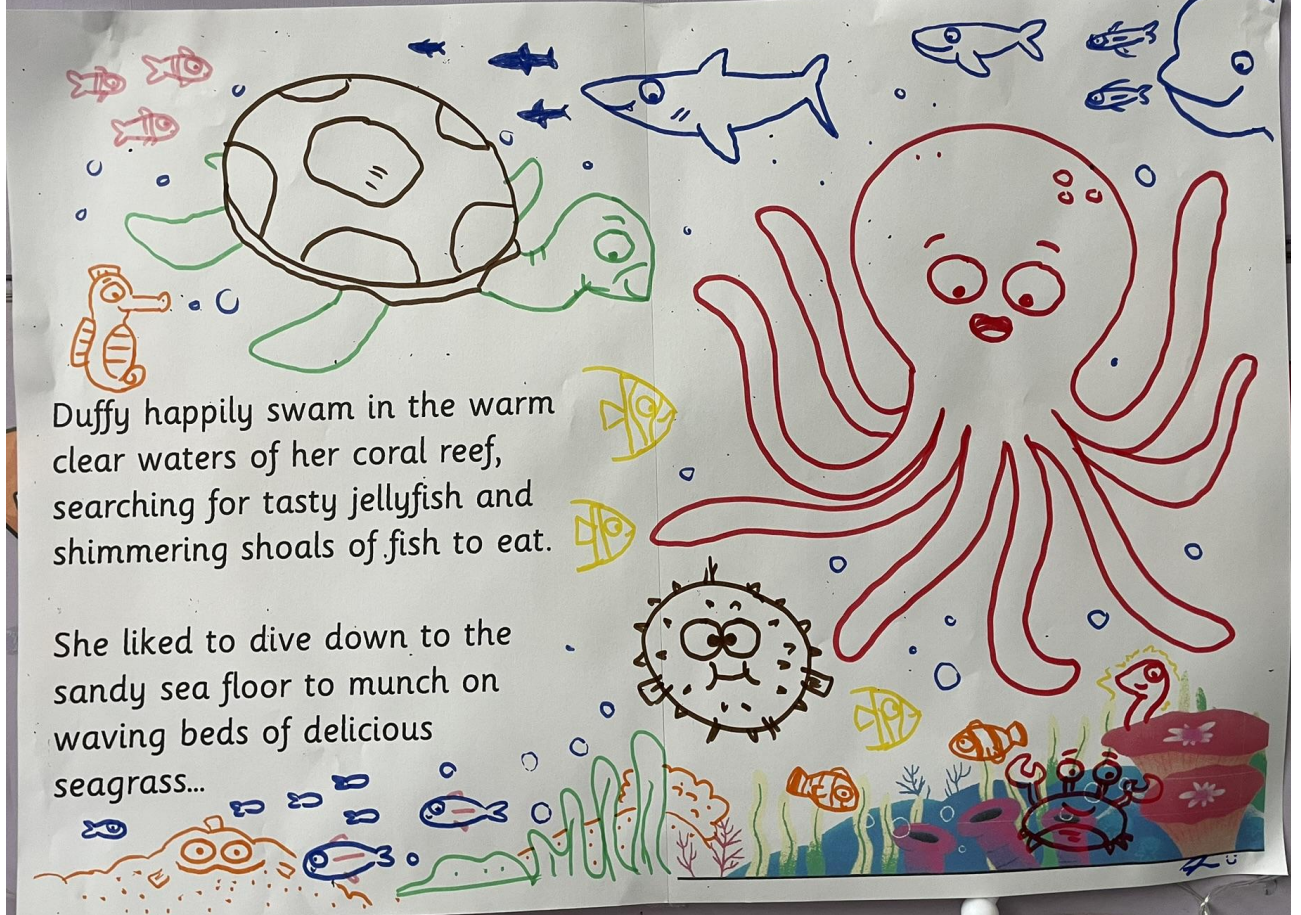 Duffy happily swam in the warm
clear waters of her coral reef,
searching for tasty jellyfish and
shimmering shoals of fish to eat.
She liked to dive down to the
sandy sea floor to munch on
waving beds of delicious
seagrass...